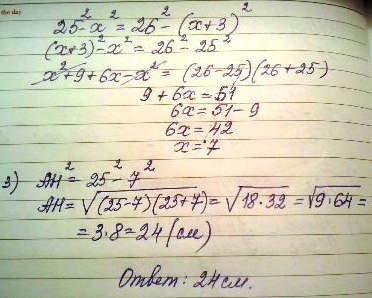 the day
25² - x² = 26² - (x+3)²
(x+3)² - x² = 26² - 25²
x² + 9 + 6x - x² = (26-25)(26+25)
9 + 6x = 51
6x = 51 - 9
6x = 42
x = 7
3) AH² = 25² - 7²
AH = √(25-7)(25+7) = √18·32 = √9·64 =
= 3·8 = 24 (см)
Ответ: 24 см.